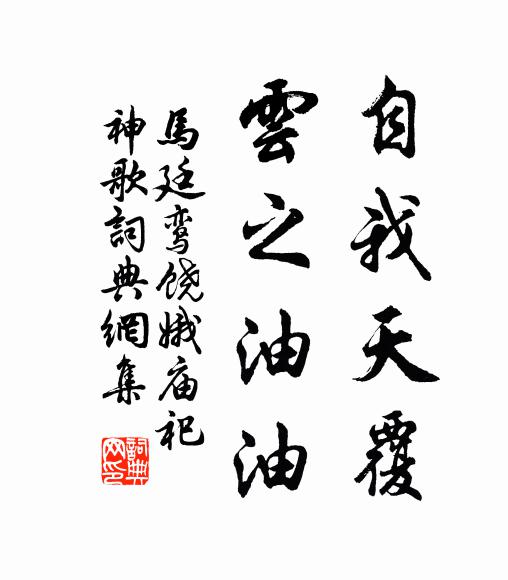 自我天覆
雲之油油
馬廷鸾饶娥庙祀
神歌詞典網集
詞典网印